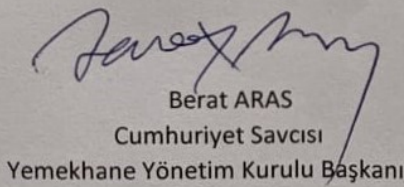 Berat ARAS
Cumhuriyet Savcısı
Yemekhane Yönetim Kurulu Başkanı